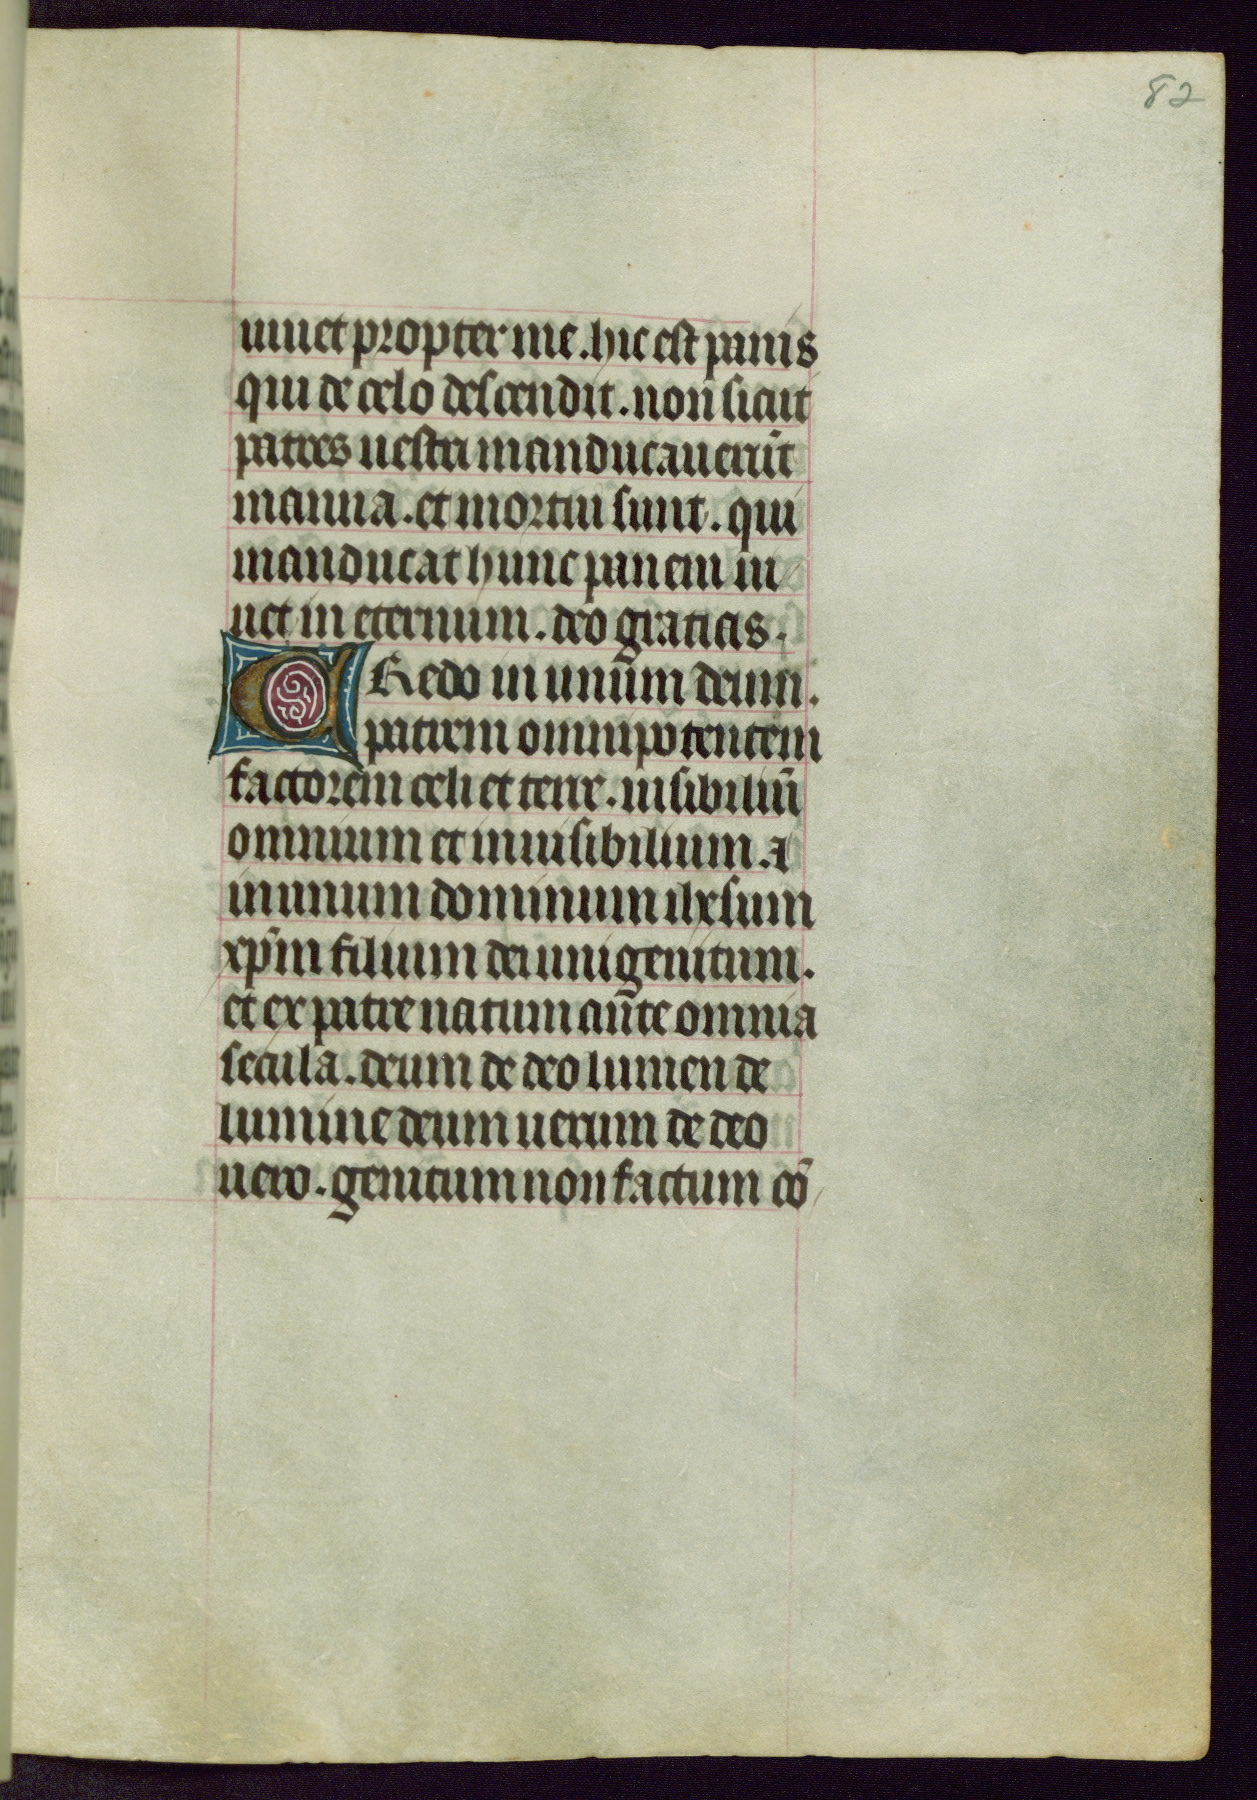 82
uiuet propter me. hic est panis
qui de celo descendit. non sicut
patres uestri manducauerūt
manna. et mortui sunt. qui
manducat hunc panem ui
uet in eternum. deo gratias.
Credo in unum deum.
patrem omnipotentem
factorem celi et terre. uisibiliū
omnium et inuisibilium. &
in unum dominum ihesum
xp̄m filium dei unigenitum.
et ex patre natum ante omnia
secula. deum de deo lumen de
lumine deum uerum de deo
uero. genitum non factum cō